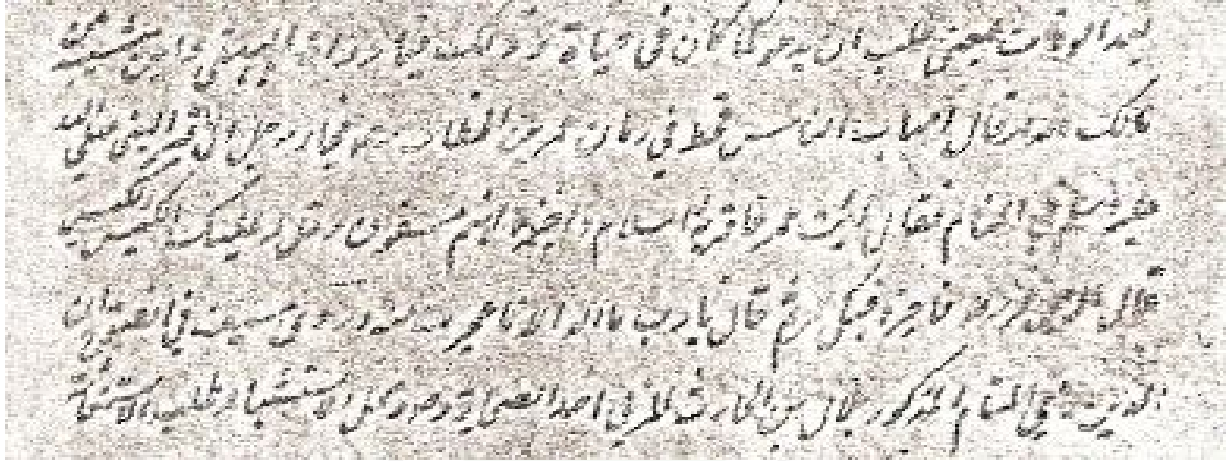 بعد الوفات بمعنى طلب ان يدعو كما كان في حياة وذلك فيما رواه البيهقي وابن ابي شيبة
مالك قال اصاب الناس قحط في زمان عمر بن الخطاب فجاء رجل الى قبر النبي صلى الله
عليه وسلم في المنام فقال ائت عمر فاقره السلام واخبره انهم مسقون وقل له عليك الكيس الكيس
قال فاخبره فبكى عمر ثم قال يا رب ما الو الا ما عجزت عنه وروى سيف في الفتوح ان
الذي رأى المنام المذكور بلال بن الحارث المزني احد الصحابة ومحل الاستشهاد طلب الاستسقاء